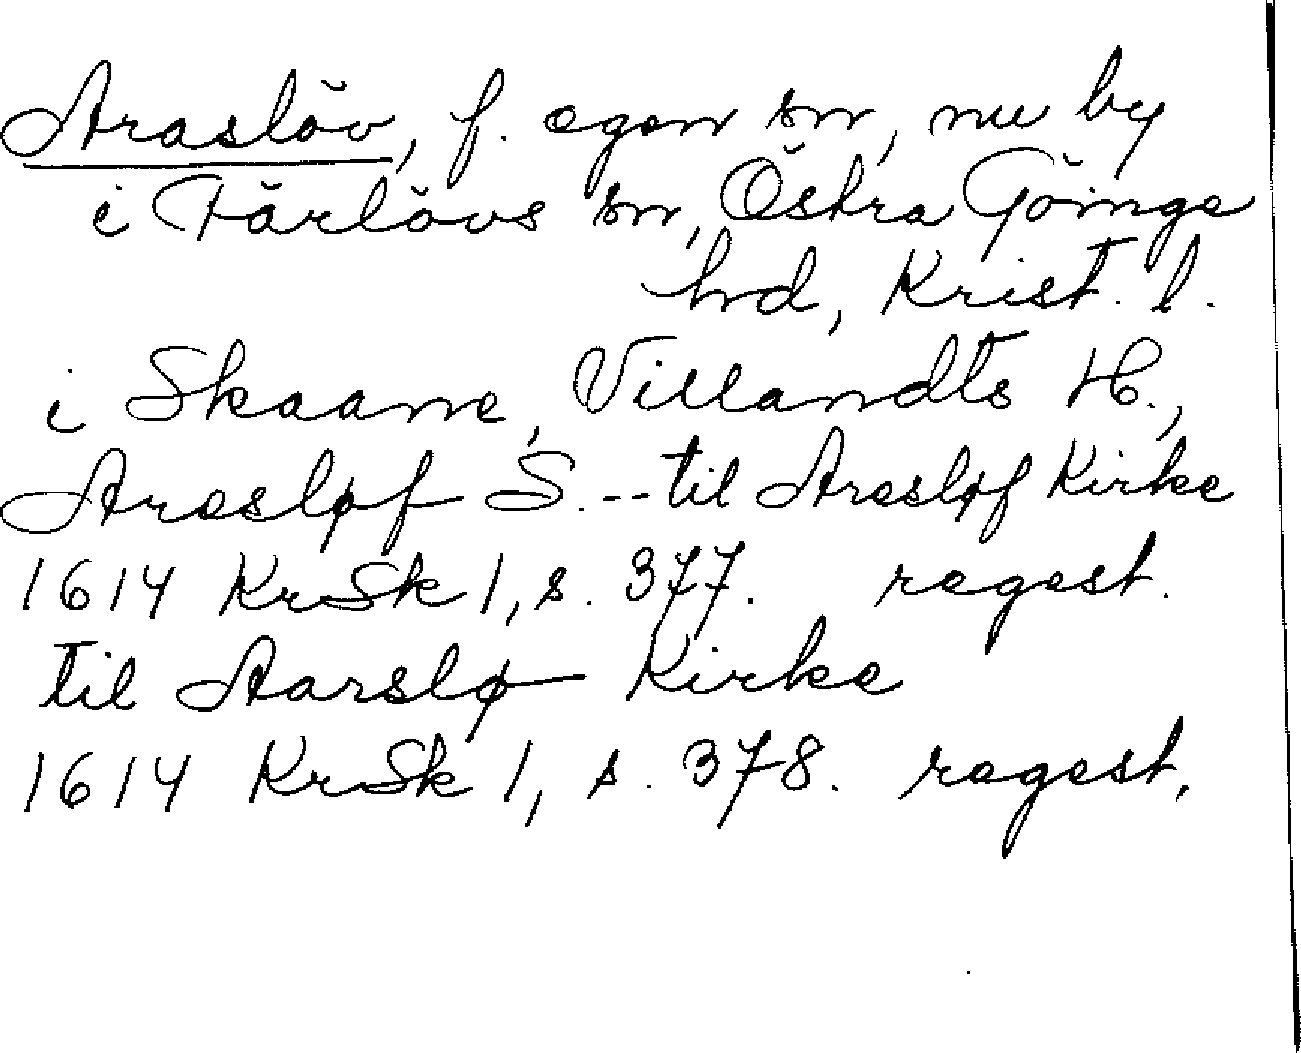 Araslöv, f. egen sn, nu by
i Färlövs sn, Östra Göinge
hrd, Krist. l.
i Skaane, Villandts H.,
Aresløf S. -- til Aresløf Kirke
1614 KrSk 1, s. 377. regest.
til Aarslø Kirke
1614 KrSk 1, s. 378. regest.